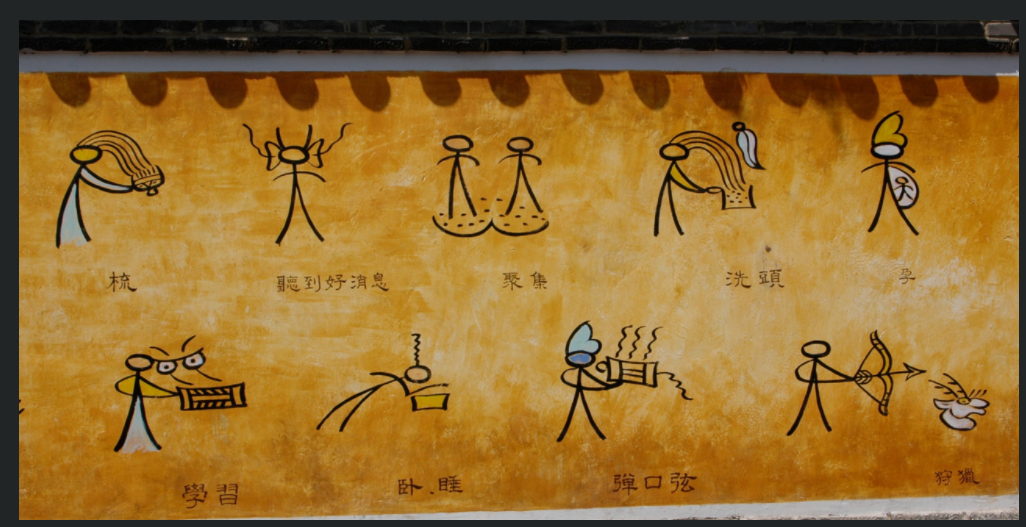 梳 聽到好消息 聚集 洗頭 孕
學習 卧.睡 弹口弦 狩獵